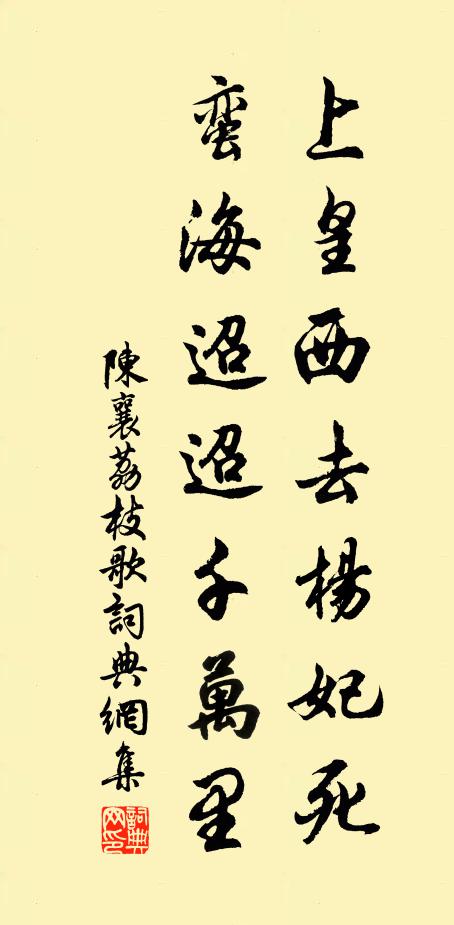 上皇西去楊妃死
蛮海迢迢千萬里
陳襄荔枝歌詞典網集
詞典网印